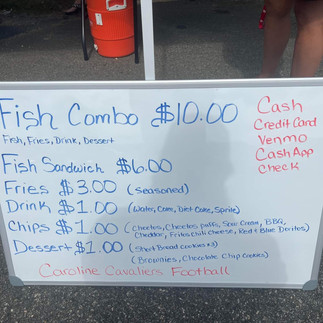 Fish Combo $10.00
Fish, Fries, Drink, Dessert
Fish Sandwich $6.00
Fries $3.00 (seasoned)
Drink $1.00 (Water, Coke, Diet Coke, Sprite)
Chips $1.00 (Cheetos, Cheetos puffs, Sour Cream, BBQ,
Cheddar, Fritos Chili Cheese, Red & Blue Doritos)
Dessert $1.00 (Short Bread cookies
(Brownies, Chocolate Chip Cookies)
Caroline Cavaliers Football
Cash
Credit Card
Venmo
CashApp
Check